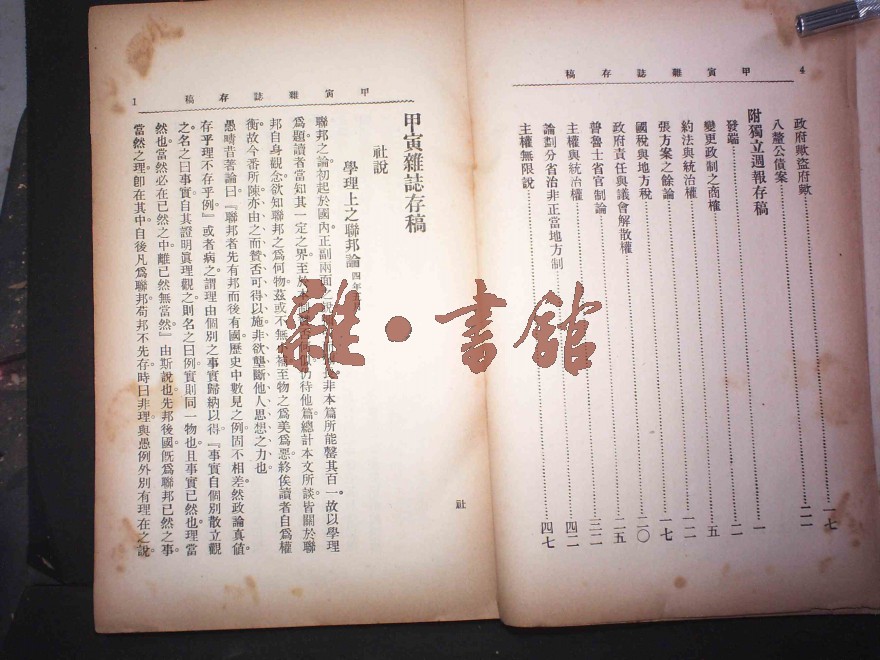 4 甲寅雜誌存稿
政府歟盜府歟……一七
八釐公債案……二二
附獨立週報存稿……一
發端……二
變更政制之商榷……五
約法與統治權……一二
張方案之餘論……一七
國稅與地方稅……二〇
政府責任與議會解散權……二五
普魯士省官制論……三二
主權與統治權……四二
論劃分省治非正當地方制……四七
主權無限說
甲寅雜誌存稿 1
甲寅雜誌存稿
社說
學理上之聯邦論 四年
聯邦之論。初起於國內。正副兩面之說非本篇所能罄其百一。故以學理
爲題。讀者當知其一定之界。至於本仍待他篇總計。本文所談。皆關於聯
邦自身觀念。欲知聯邦之爲何物。茲或不無至物之爲美爲惡。終俟讀者自爲權
衡。故今番所陳。亦由之而贊否可得以施。非欲壟斷他人思想之力也。
愚疇昔著論曰。『聯邦者先有邦而後有國。歷史中數見之例。固不相差。然政論眞値
存乎理。不存乎例。』或者病之。謂理由個別之事實歸納以得。『事實自個別散立觀
之。名之曰事實。自其證明眞理觀之。則名之曰例。實則同一物也。且事實已然也。理當
然也。當然必在已然之中。離已然無當然。』由斯說也。先邦後國。旣爲聯邦已然之事。
當然之理。卽在其中。自後凡爲聯邦。苟邦不先存。時曰非理。與愚例外別有理在之說。
社
雜·書館